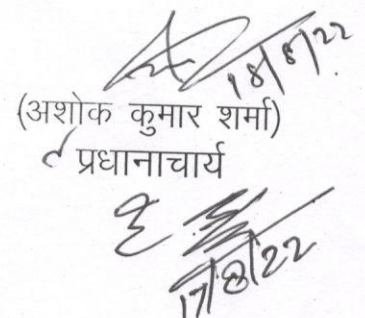 18/8/22
(अशोक कुमार शर्मा)
प्रधानाचार्य
17/8/22